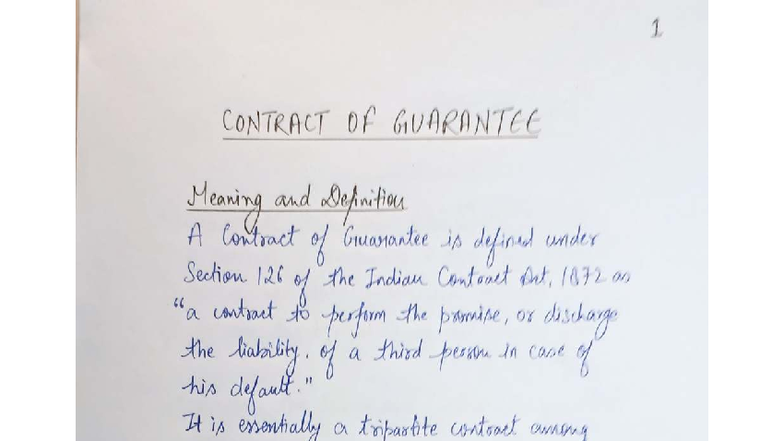 1
CONTRACT OF GUARANTEE
Meaning and Definition
A Contract of Guarantee is defined under
Section 126 of the Indian Contract Act, 1872 as
"a contract to perform the promise, or discharge
the liability, of a third person in case of
his default."
It is essentially a tripartite contract among